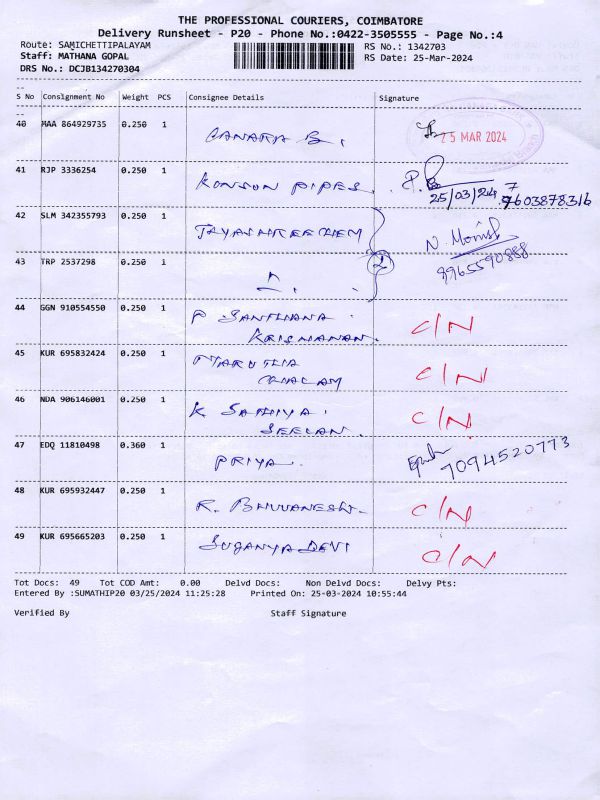 THE PROFESSIONAL COURIERS, COIMBATORE
Delivery Runsheet - P20 - Phone No.:0422-3505555 - Page No.:4
Route: SAMICHETTIPALAYAM RS No.: 1342703
Staff: MATHANA GOPAL RS Date: 25-Mar-2024
DRS No.: DCJB134270304
S No Consignment No Weight PCS Consignee Details Signature
40 MAA 864929735 0.250 1
CANARA B. 25 MAR 2024
41 RJP 3336254 0.250 1
KONSON PIPES. 25/03/24 7603878316
42 SLM 342355793 0.250 1
JAYASHREE CHEM
43 TRP 2537298 0.250 1 2 8965590888
44 GGN 910554550 0.250 1
P SANTHANA C/N
KRISHANAN.
45 KUR 695832424 0.250 1
MARUTHA C/N
46 NDA 906146001 0.250 1
K SATHIYA. C/N
SEELAN.
47 EDQ 11810498 0.360 1
PRIYA. 7094520773
48 KUR 695932447 0.250 1
R. BHUVANESH. C/N
49 KUR 695665203 0.250 1
SUGANYA DEVI C/N
Tot Docs: 49 Tot COD Amt: 0.00 Delvd Docs: Non Delvd Docs: Delvy Pts:
Entered By :SUMATHIP20 03/25/2024 11:25:28 Printed On: 25-03-2024 10:55:44
Verified By Staff Signature